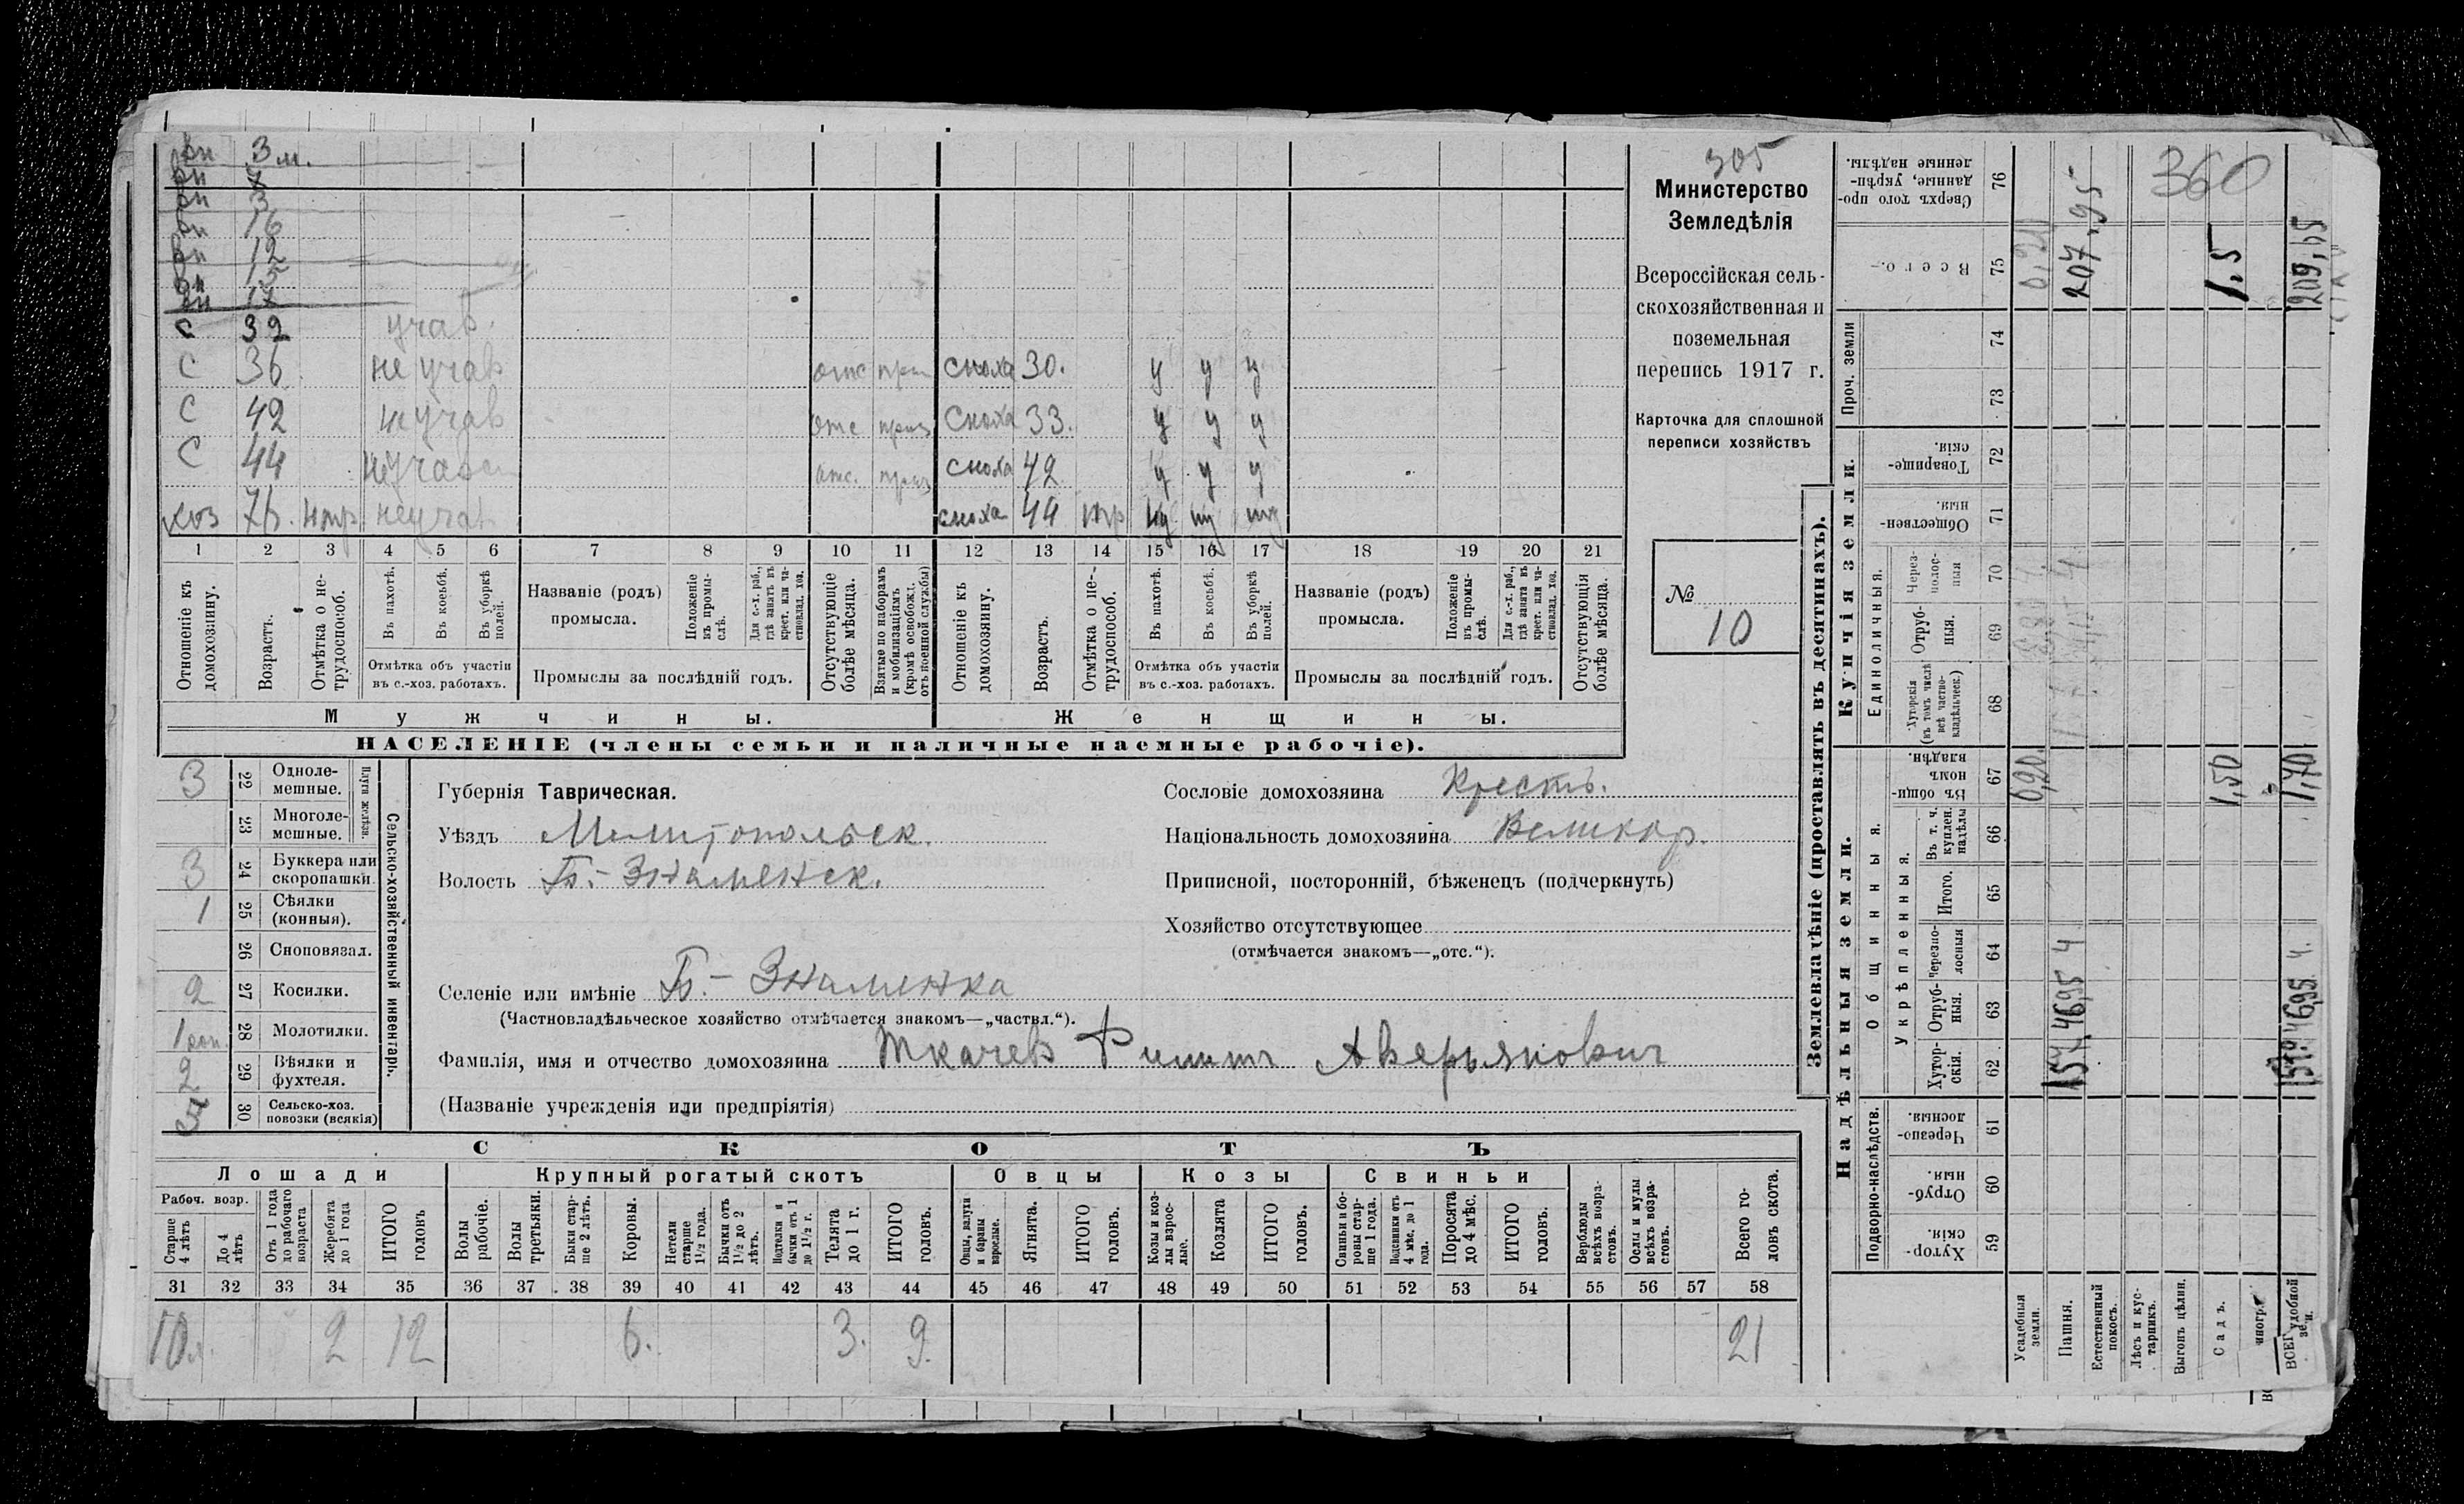 305
Министерство
Земледѣлія
Всероссійская сель-
скохозяйственная и
поземельная
перепись 1917 г.
Карточка для сплошной
переписи хозяйствъ
№
10
360
вн 3 м.
вн
вн 3
вн 16
вн 12
вн 13
вн 17
с 32 учав.
с 36 не учав отс приз сноха 30. у у у
с 42 не учав отс приз сноха 33. у у у
с 44 не учав отс. приз сноха 42 у у у
хоз 76. нтр. не учав сноха 44 нтр ну ну ну
1 2 3 4 5 6 7 8 9 10 11 12 13 14 15 16 17 18 19 20 21
Отношеніе къ домохозяину.
Возрастъ.
Отмѣтка о не-трудоспособ.
Въ пахотѣ.
Въ косьбѣ.
Въ уборкѣ полей.
Отмѣтка объ участіи въ с.-хоз. работахъ.
Названіе (родъ) промысла.
Положеніе въ промы-слѣ.
Для с.-х. раб., гдѣ занятъ въ крест. или ча-стновлад. хоз.
Промыслы за послѣдній годъ.
Отсутствующіе болѣе мѣсяца.
Взятые по наборамъ и мобилизаціямъ (кромѣ освобожд. отъ военной службы)
Отношеніе къ домохозяину.
Возрастъ.
Отмѣтка о не-трудоспособ.
Въ пахотѣ.
Въ косьбѣ.
Въ уборкѣ полей.
Отмѣтка объ участіи въ с.-хоз. работахъ.
Названіе (родъ) промысла.
Положеніе въ промы-слѣ.
Для с.-х. раб., гдѣ занята въ крест. или ча-стновлад. хоз.
Промыслы за послѣдній годъ.
Отсутствующія болѣе мѣсяца.
Мужчины.
Женщины.
НАСЕЛЕНІЕ (члены семьи и наличные наемные рабочіе).
Сельско-хозяйственный инвентарь.
Плуги желѣзн.
3 22 Одноле-мешные.
23 Многоле-мешные.
3 24 Буккера или скоропашки
1 25 Сѣялки (конныя).
26 Сноповязал.
2 27 Косилки.
1 кон. 28 Молотилки.
2 29 Вѣялки и фухтеля.
30 Сельско-хоз. повозки (всякія)
Губернія Таврическая.
Уѣздъ Мелитопольск.
Волость Б.-Знаменск.
Селеніе или имѣніе Б.-Знаменка
(Частновладѣльческое хозяйство отмѣчается знакомъ—„частвл.“).
Фамилія, имя и отчество домохозяина Ткачев Филипп Аверьянович
(Названіе учрежденія или предпріятія)
Сословіе домохозяина Крестъ.
Національность домохозяина Великор.
Приписной, посторонній, бѣженецъ (подчеркнуть)
Хозяйство отсутствующее
(отмѣчается знакомъ—„отс.“).
СКОТЪ
Лошади
Крупный рогатый скотъ
Овцы
Козы
Свиньи
Рабоч. возр.
Старше 4 лѣтъ
До 4 лѣтъ
Отъ 1 года до рабочаго возраста
Жеребята до 1 года
ИТОГО головъ
Волы рабочіе.
Волы третьяки.
Быки стар-ше 2 лѣтъ.
Коровы.
Нетели старше 1½ года.
Бычки отъ 1½ до 2 лѣтъ.
Подтелки и бычки отъ 1 до 1½ г.
Телята до 1 г.
ИТОГО головъ.
Овцы, валухи и бараны взрослые.
Ягнята.
ИТОГО головъ.
Козы и коз-лы взрос-лые.
Козлята
ИТОГО головъ.
Свиньи и бо-ровы стар-ше 1 года.
Подсвинки отъ 4 мѣс. до 1 года.
Поросята до 4 мѣс.
ИТОГО головъ.
Верблюды всѣхъ возра-стовъ.
Ослы и мулы всѣхъ возра-стовъ.
Всего го-ловъ скота.
31 32 33 34 35 36 37 38 39 40 41 42 43 44 45 46 47 48 49 50 51 52 53 54 55 56 57 58
10 2 12 6. 3. 9. 21
Землевладѣніе (проставлять въ десятинахъ).
Надѣльныя земли.
Купчія земли.
Проч. земли
Подворно-наслѣдств.
Общинныя.
Укрѣпленныя.
Единоличныя.
Хутор-скія. 59
Отруб-ныя. 60
Черезпо-лосныя. 61
Хутор-скія. 62
Отруб-ныя. 63
Черезпо-лосныя 64
Итого. 65
Въ т. ч. куплен. надѣлы 66
Въ общин-номъ владѣн. 67
Хуторскія (въ томъ числѣ всѣ частно-владѣльческ.) 68
Отруб-ныя. 69
Через-полос-ныя 70
Обществен-ныя. 71
Товарище-скія. 72
73
74
Всего. 75
Сверхъ того про-данные, укрѣп-ленные надѣлы. 76
Усадебныя земли. 0,20
Пашня. 207,95
Естественный покосъ.
Лѣсъ и кус-тарникъ.
Выгонъ цѣлин.
Садъ. 1,50 1,5
виногр.
ВСЕГ удобной 1,70